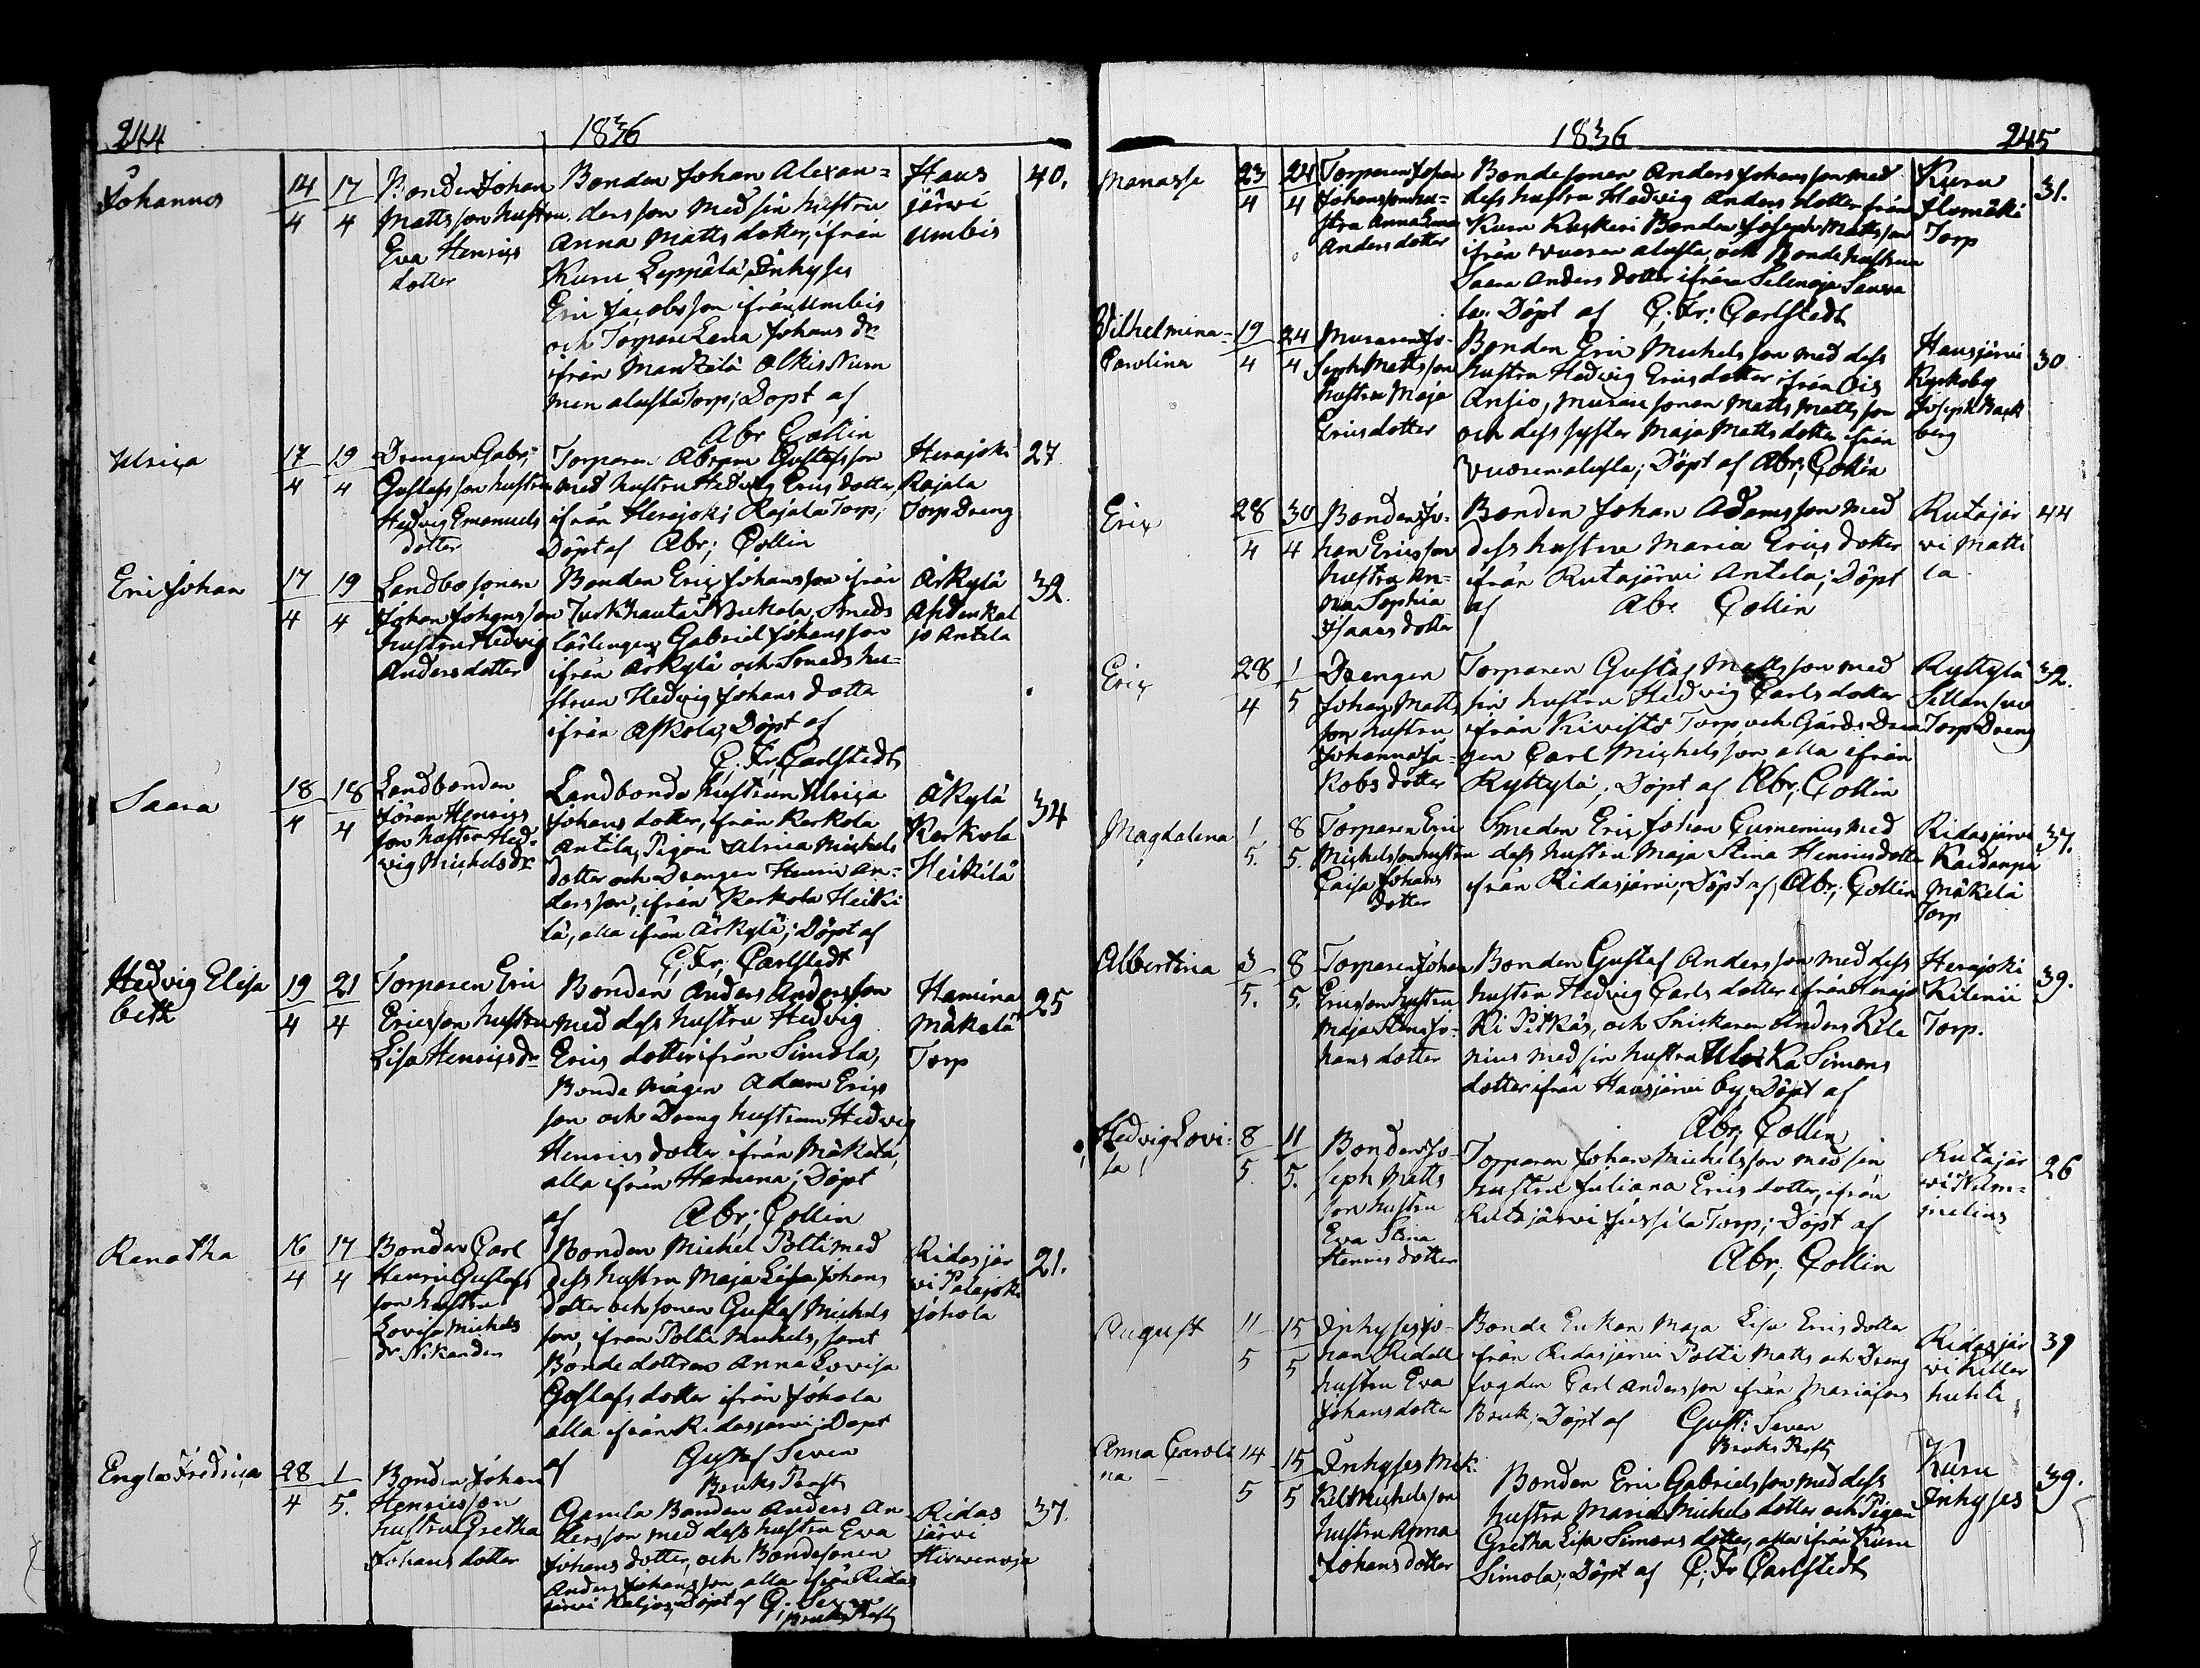 244
1836
Johannes
14
4
17
4
Bonden Johan
Mattsson hustru
Eva Henrics
dotter
Bonden Johan Alexan=
dersson med sin hustru
Anna Matts dotter, ifrån
Kuru Leppälä, Inhyses
Eric Jacobsson ifrån Umbis
och Torpare Lena Johans dr
ifrån Mantzilä Alkis Num
men alusta Torp; Döpt af
Abr Collin
Haus
järwi
Umbis
40.
Ulrica
17
4
19
4
Drengen Gabr;
Gustafsson hustru
Hedvig Emanuels
dotter
Torparen Abram Gustafsson
med hustru Hedvig Erics dotter,
ifrån Herajoki Rajala Torp;
Döpt af Abr; Collin
Herajoki
Rajala
Torp Dreng
27
Eric Johan
17
4
19
4
Landbosonen
Johan Johansson
hustru Hedvig
Andersdotter
Bonden Eric Johansson ifrån
Turkhauta Smeds
lärlingen Gabriel Johansson
ifrån Ärkylä och Smedshu=
strun Hedvig Johans dotter
ifrån Askola; Döpt af
C; Fr; Carlstedt
Ärkylä
jo Antila
32.
Saara
18
4
18
4
Landbonden
Göran Henrics
son hustru Hed=
vig Michelsdr
Landbonde hustrun Ulrica
Johans dotter, ifrån Kerkola
Antila, Pigan Ulrica Michels
dotter och Drengen Henric An=
dersson, ifrån Kerkola Heiki
lä, alla ifrån Ärkylä; Döpt af
C; Fr; Carlstedt
Äkylä
Kerkola
Heikilä
34
Hedvig Elisa
beth
19
4
21
4
Torparen Eric
Ericsson hustru
Lisa Henricsdr
Bonden Anders Andersson
med dess hustru Hedvig
Erics dotter ifrån Simola,
Bonde mågen Adam Erics
son och Dreng hustrun Hedvig
Henrics dotter ifrån Mäkelä,
alla ifrån Hamina; Döpt
af Abr; Collin
Hamina
Mäkelä
Torp
25
Renatha
16
4
17
4
Bonden Carl
Henric Gustafs
son hustru
Lovisa Michels
dr Nikander
Bonden Michel Polti med
dess hustru Maja Lisa Johans
dotter och sonen Gustaf Michels
son, ifrån Polti Michels, samt
Bonde dottren Anna Lovisa
Gustafs dotter ifrån Jokela
alla ifrån Ridasjärwi; Döpt
af Gustaf Seven
Bruks Prest
Ridasjär
wi Palajoki
Jokola
21.
Engla Fredrica
28
4
1
5.
Bonden Johan
Henricsson
hustru Gretha
Johans dotter
Gamla Bonden Anders An=
dersson med dess hustru Eva
Johans dotter, och Bondesonen
Anders Johansson alla ifrån Ridas
järwi Kaljos; Döpt af G; Seven
Bruks Prest
Ridas
järwi
Hirwenoja
37.
1836
245
Manasse
23
4
24
4
Torparen Johan
Johansson hu=
stru Anna Lena
Anders dotter
Bondesonen Anders Johansson med
dess hustru Hedvig Anders dotter från
Kuru Bonden Joseph Mattsson
ifrån Wuoren alusta, och Bonde hustrun
Saara Anders dotter ifrån Selenoja Sauva
la; Döpt af C; Fr; Carlstedt
Kuru
Ilomäki
Torp
31.
Vilhelmina=
Carolina
19
4
24
4
Muraren Jo=
seph Mattsson
hustru Maja
Erics dotter
Bonden Eric Michelsson med dess
hustru Hedvig Ericsdotter ifrån Ois
Ansio, Murare sonen Matts Mattsson
och dess syster Maja Matts dotter ifrån
Wuoren alusta; Döpt af Abr; Collin
Hausjärvi
Kyrkoby
Joseph Back
berg
30
Eric
28
4
30
4
Bonden Jo=
han Ericsson
hustru An=
na Sophia
Isaacs dotter
Bonden Johan Adamsson med
dess hustru Maria Erics dotter
ifrån Rutajärwi Antila; Döpt
af Abr Collin
Rutajär
wi Matti
la
44
Eric
28
4
1
5
Drengen
Johan Matts
son hustru
Johanna Ja=
kobs dotter
Torparen Gustaf Mattsson med
sin hustru Hedvig Carls dotter
ifrån Kivistö Torp, och Gårds Dren
gen Carl Michelsson alla ifrån
Ryttylä; Döpt af Abr; Collin
Ryttylä
Sillansuu
Torp Dreng
32.
Magdalena
1
5.
8
5.
Torparen Eric
Michelsson hustru
Caisa Johans
dotter
Smeden Eric Johan Cumenius med
dess hustru Maja Stina Henricsdotter
ifrån Ridasjärvi; Döpt af; Abr; Collin
Ridasjärvi
Mäkelä
Torp
37.
Albertina
3
5.
8
5.
Torparen Johan
Ericsson hustru
Maja Stina Jo=
hans dotter
Bonden Gustaf Andersson med dess
hustru Hedvig Carls dotter ifrån Herajo
ki Pitkäs, och Snickaren Anders Kile
nius med sin hustru Ulrika Simons
dotter ifrån Hausjärvi by; Döpt af
Abr; Collin
Herajoki
Kilenii
Torp.
39.
Hedvig Lovi=
sa
8
5.
11
5.
Bonden Jo=
seph Matts
son hustru
Eva Stina
Henrics dotter
Torparen Johan Michelsson med sin
hustru Juliana Erics dotter, ifrån
Rutajärwi Jussila Torp; Döpt af
Abr; Collin
Rutajär
26
August
11
5
15
5
Inhyses Jo=
han Ridell
hustru Eva
Johansdotter
Bonde Enkan Maja Lisa Erics dotter
ifrån Ridasjärvi Polti Matts och Dreng
fogden Carl Andersson ifrån Mariäfors
Bruk; Döpt af Gust: Seven
Bruks Prest
Ridasjär
wi Killer
huhti
39
Anna Caroli
na
14
5
15
5
Inhyses Mik:
kel Michelsson
hustru Anna
Johans dotter
Bonden Eric Gabrielsson med dess
hustru Maria Michels dotter och Pigan
Gretha Lisa Simons dotter, alla ifrån Kuru
Simola; Döpt af C; Fr Carlstedt
Kuru
Inhyses
39.